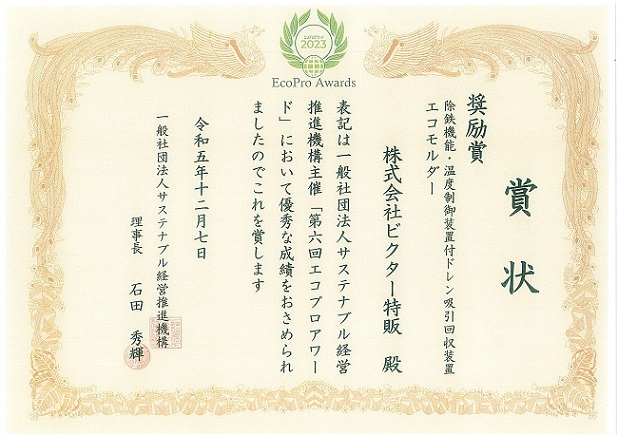 エコプロアワード
2023
EcoPro Awards
賞状
奨励賞
除鉄機能・温度制御装置付ドレン吸引回収装置
エコモルダー
株式会社ビクター特販 殿
表記は一般社団法人サステナブル経営
推進機構主催「第六回エコプロアワー
ド」において優秀な成績をおさめられ
ましたのでこれを賞します
令和五年十二月七日
一般社団法人サステナブル経営推進機構
理事長 石田 秀輝